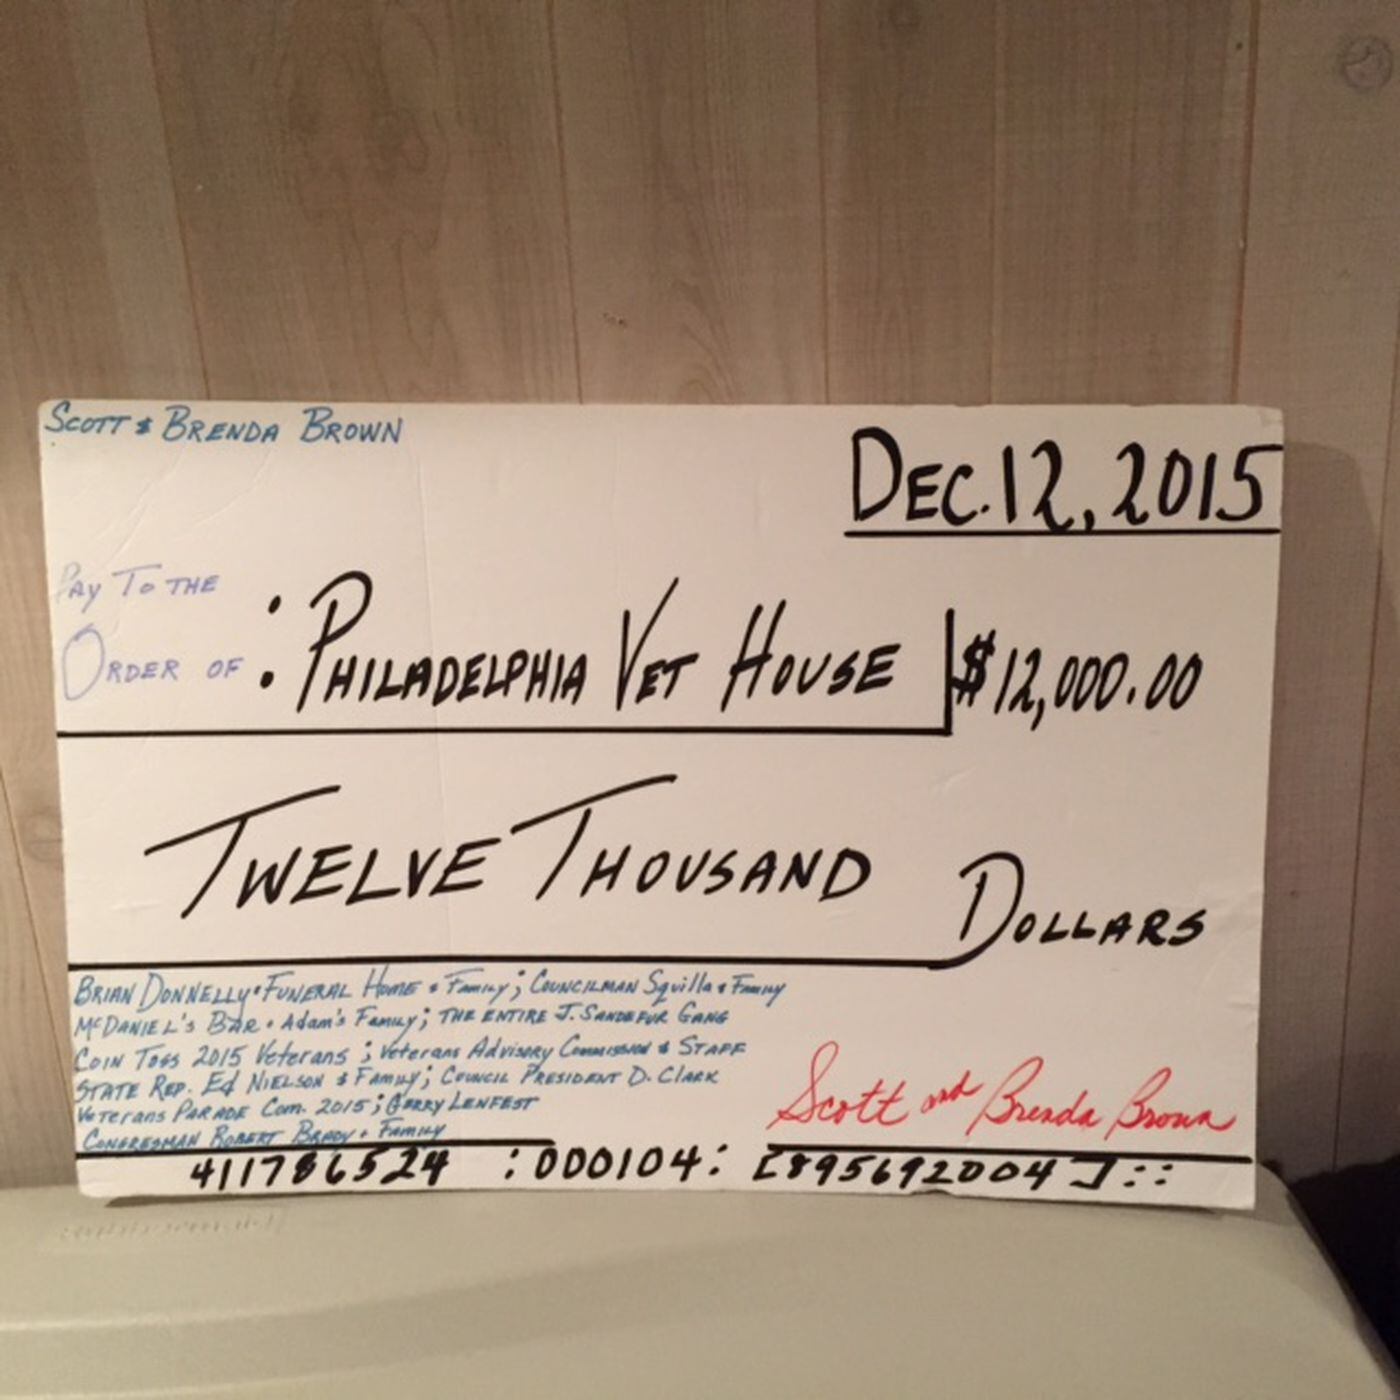 Scott & Brenda Brown
Dec. 12, 2015
Pay To the
Order of : Philadelphia Vet House $12,000.00
Twelve Thousand Dollars
Brian Donnelly • Funeral Home & Family; Councilman Squilla & Family
McDaniel's Bar • Adam's Family; The Entire J. Sandefur Gang
Coin Toss 2015 Veterans; Veterans Advisory Commission & Staff
State Rep. Ed Nielson & Family; Council President D. Clark
Veterans Parade Com. 2015; Gerry Lenfest
Congresman Robert Brady & Family
Scott and Brenda Brown
411786524 :000104: [895692004]::